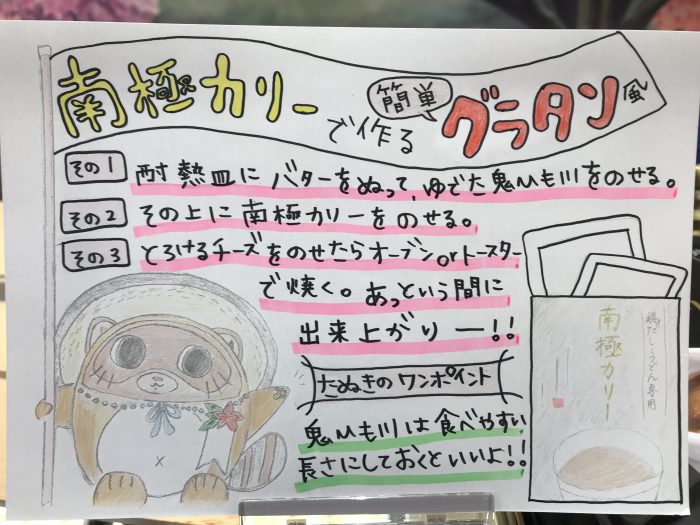 南極カリーで作る簡単グラタン風
その1 耐熱皿にバターをぬって、ゆでた鬼ひも川をのせる。
その2 その上に南極カリーをのせる。
その3 とろけるチーズをのせたらオーブンorトースター
で焼く。あっという間に
出来上がりー!!
たぬきのワンポイント
鬼ひも川は食べやすい
長さにしておくといいよ!!
鶏だしうどん専用
南極カリー